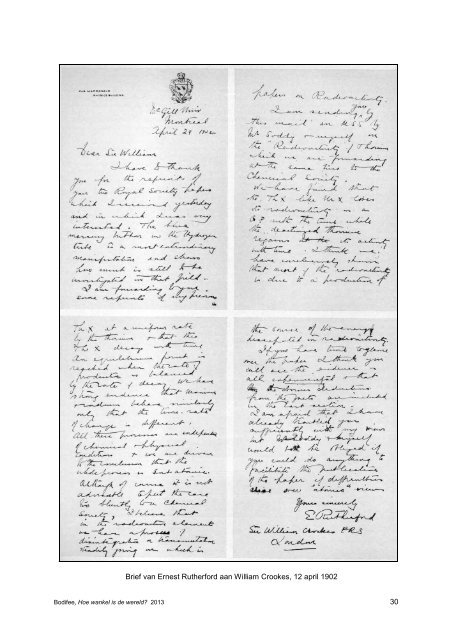 McGill Univ
Montreal
April 29 1902
Dear Sir William
I have to thank
you for the reprint of
your the Royal Society papers
which I received yesterday
and in which I was very
interested. The blue
mercury
tube is a most extraordinary
manifestation and shows
how much is still to be
investigated in that field.
I am forwarding to you
some reprints of my previous
papers on Radioactivity.
I am sending you by
this mail an MSS by
Mr Soddy & myself on
the "Radioactivity of Thorium
which we are forwarding
at the same time to the
Chemical Society.
We have found that
the ThX like UrX loses
its radioactivity in a
G.P. with the time while
the
regains its activity
with time. I think we
have conclusively shown
that most of the radioactivity
is due to a production of
ThX at a uniform rate
by the thorium & that the
ThX decays with time
An equilibrium point is
reached when the rate of
production is balanced
by the rate of decay. We have
strong evidence that uranium
& radium behave similarly
only that the time rate
of change is different.
All these processes are independent
of chemical & physical
conditions & we are driven
to the conclusion that the
whole process is sub atomic.
Although of course it is not
advisable to put the case
too bluntly to a Chemical
Society, I believe that
in the radioactive elements
we have a process of
disintegration or transmutation
steadily going on which is
the source of the energy
dissipated in radioactivity.
If you have time to glance
over the paper I think you
will see the evidence is
all experimental & that
deductions
from the facts are included
in the last section.
I am afraid that I have
already troubled you
sufficiently with my
but Soddy & myself
would be obliged if
you could do anything to
facilitate the publication
of the paper if difficulties
arose over "atomic" views
Yours sincerely
E. Rutherford
Sir William Crookes F.R.S
London
Brief van Ernest Rutherford aan William Crookes, 12 april 1902
Bodifee, Hoe wankel is de wereld? 2013 30